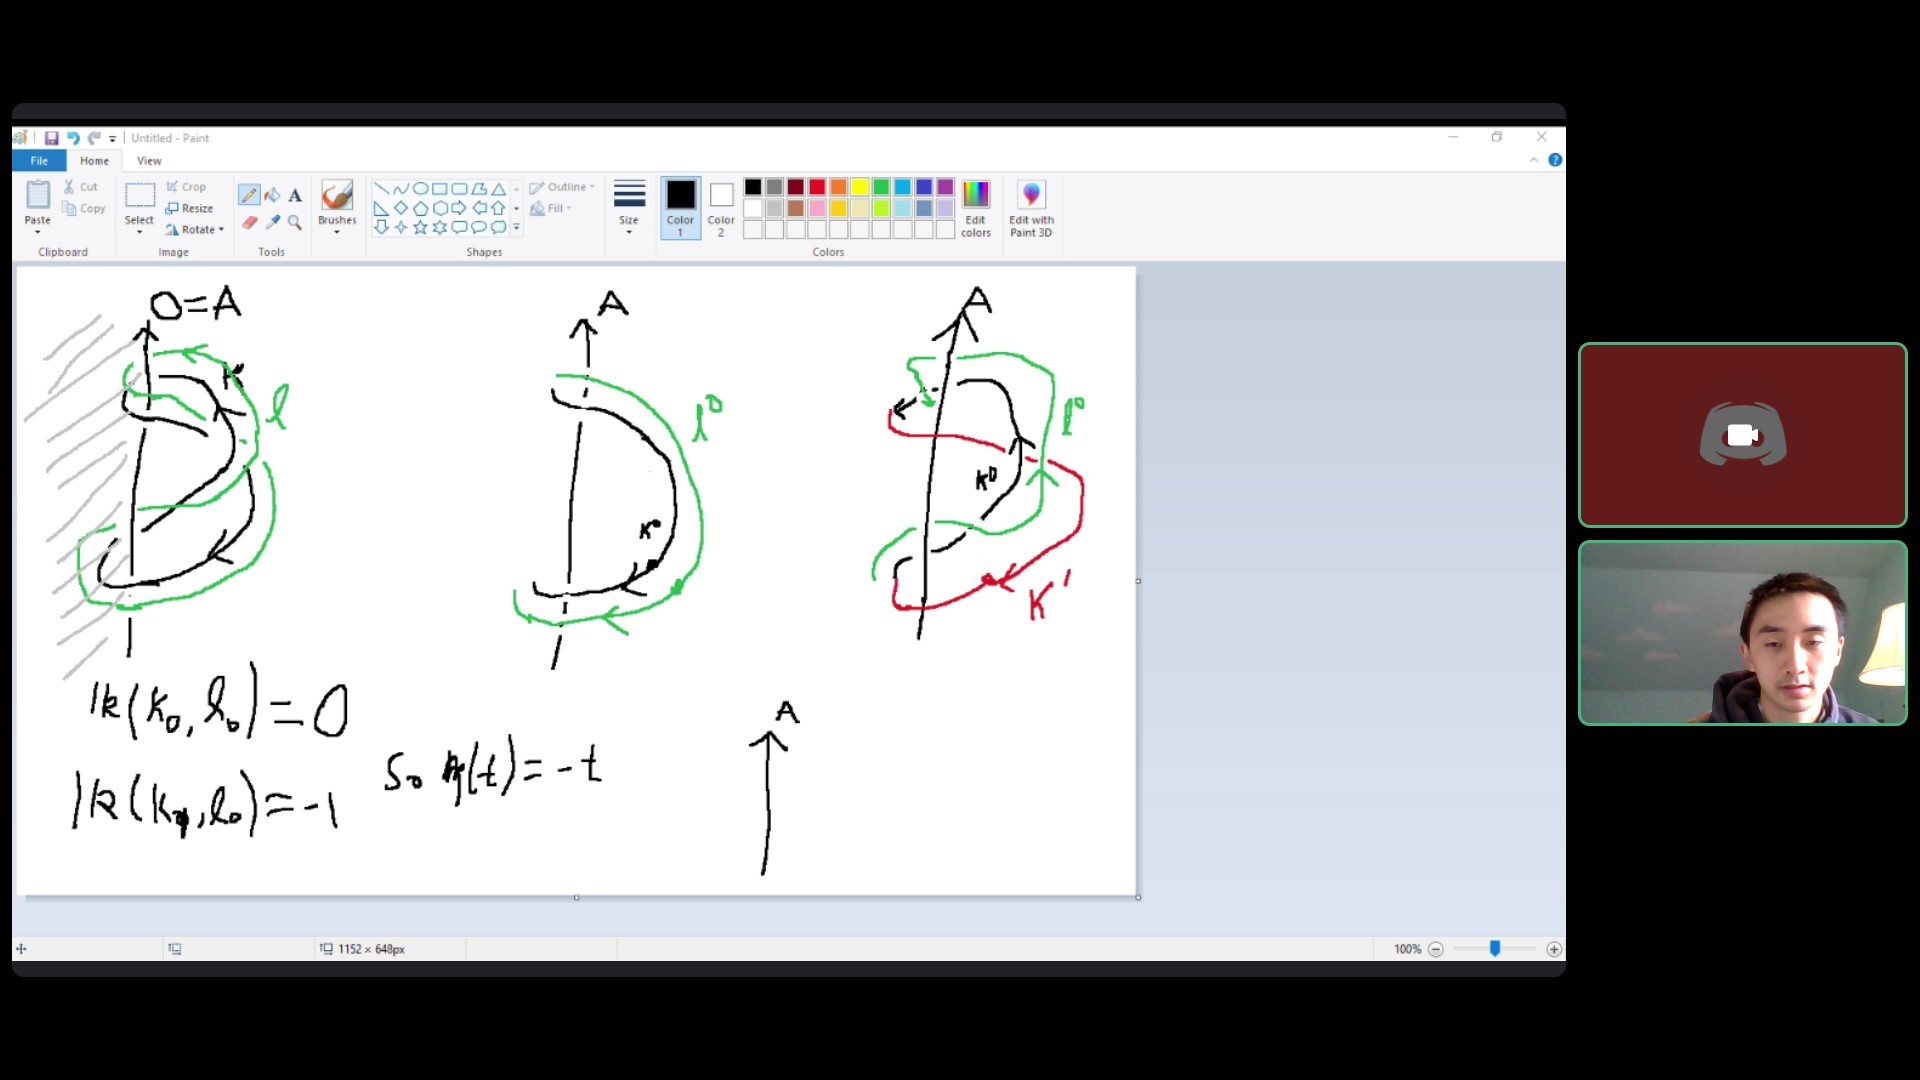 Untitled - Paint
File Home View
Cut
Copy
Paste
Clipboard
Select
Crop
Resize
Rotate
Image
A
Tools
Brushes
Outline
Fill
Shapes
Size
Color 1
Color 2
Edit colors
Edit with Paint 3D
Colors
O=A
K
l
A
l⁰
K⁰
A
l⁰
K⁰
K'
lk(K₀, l₀) = 0
lk(K₁, l₀) = -1
So η(t) = -t
A
1152 × 648px
100%